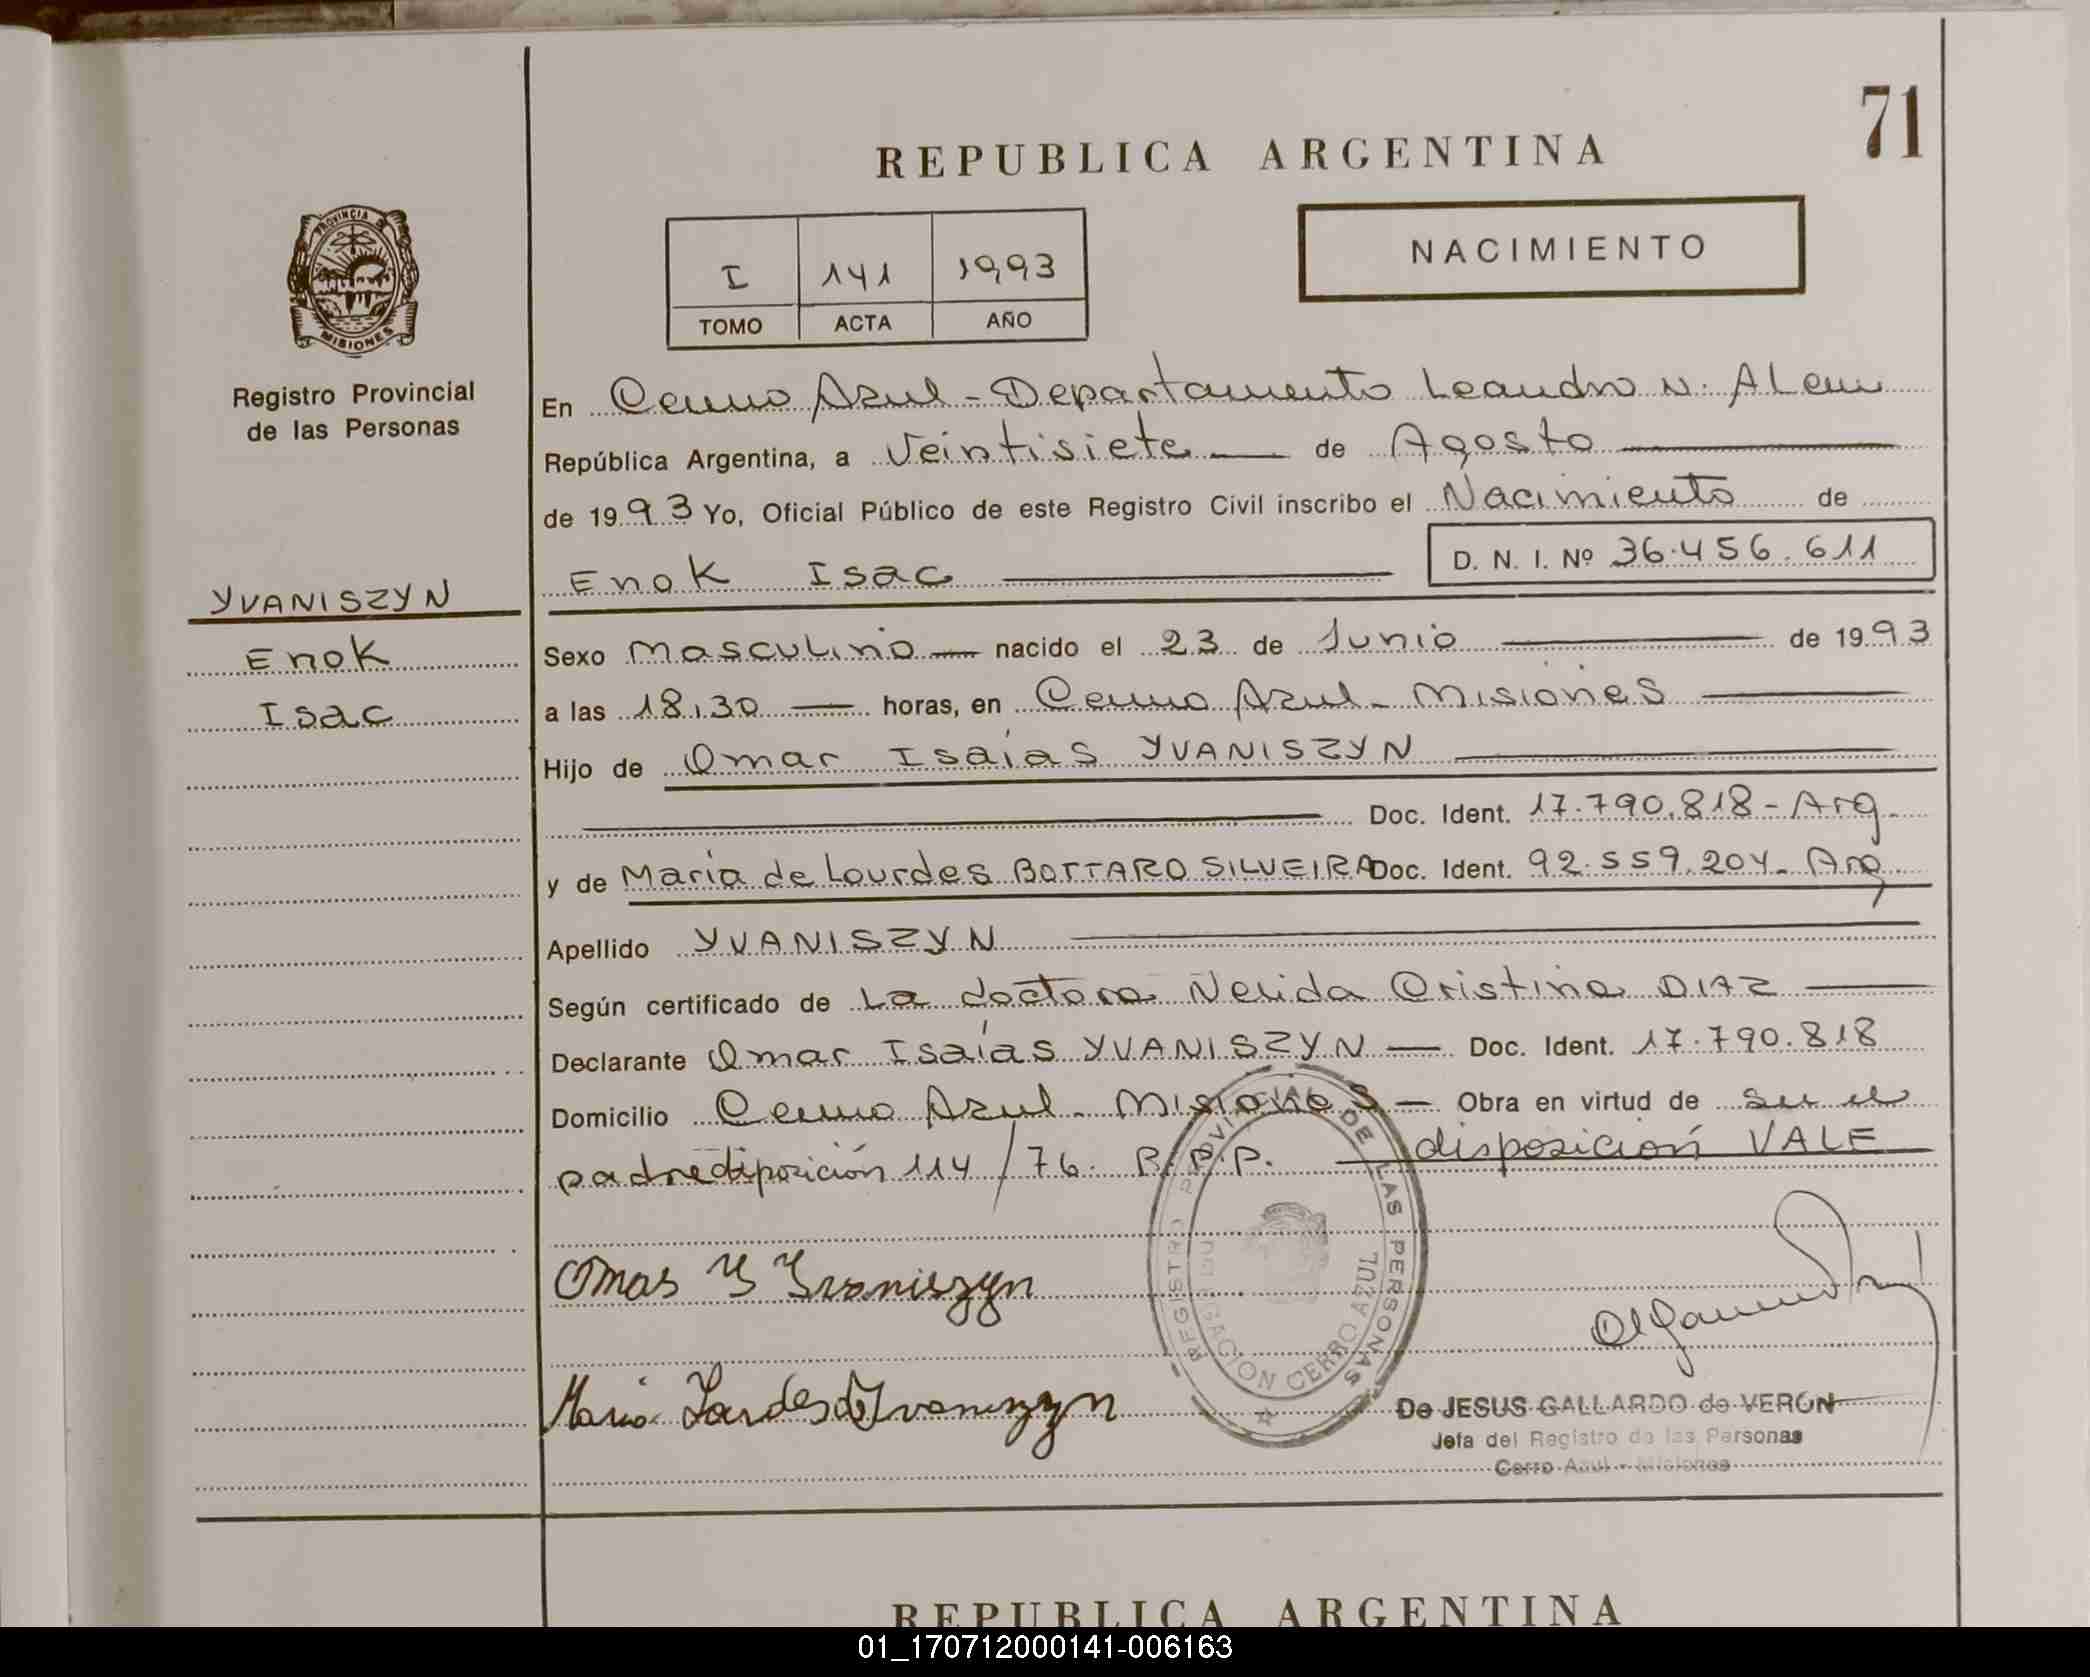 71
REPUBLICA ARGENTINA
PROVINCIA DE
MISIONES
Registro Provincial
de las Personas
NACIMIENTO
I 141 1993
TOMO ACTA AÑO
En Cerro Azul - Departamento Leandro N. ALem
República Argentina, a Veintisiete de Agosto
de 1993 Yo, Oficial Público de este Registro Civil inscribo el Nacimiento de
Enok Isac D. N. I. Nº 36.456.611
YVANISZYN
Enok
Isac
Sexo Masculino nacido el 23 de Junio de 1993
a las 18,30 horas, en Cerro Azul - Misiones
Hijo de Omar Isaías YVANISZYN
Doc. Ident. 17.790.818 - Arg.
y de María de Lourdes BOTTARO SILVEIRA Doc. Ident. 92.559.204 - Arg
Apellido YVANISZYN
Según certificado de La doctora Nelida Cristina DIAZ
Declarante Omar Isaías YVANISZYN Doc. Ident. 17.790.818
Domicilio Cerro Azul - Misiones Obra en virtud de ser el
padre diposición 114/76. R.P.P. disposición VALE
REGISTRO PROVINCIAL DE LAS PERSONAS
CERRO AZUL
Omar Y Yvaniszyn
Maria Lourdes de Yvaniszyn
De JESUS GALLARDO de VERON
Jefa del Registro de las Personas
Cerro Azul - Misiones
REPUBLICA ARGENTINA
01_170712000141-006163